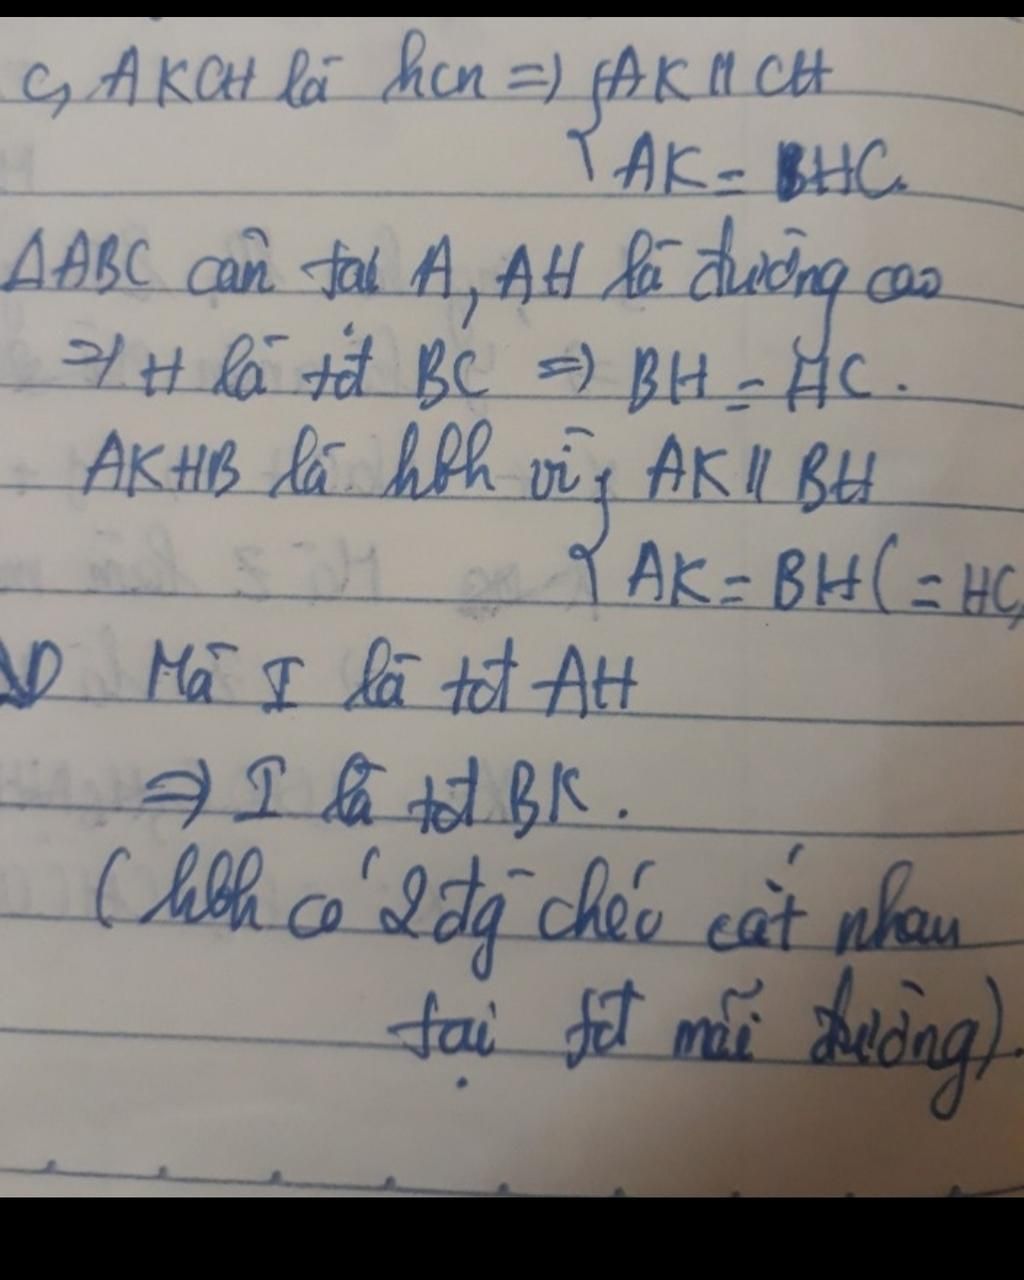 c, AKCH là hcn => { AK // CH
AK = HC.
ΔABC cân tại A, AH là đường cao
=> H là tđ BC => BH = HC.
AKHB là hbh vì { AK // BH
AK = BH (= HC)
Mà I là tđ AH
=> I là tđ BK.
(hbh có 2 đg chéo cắt nhau
tại tđ mỗi đường).